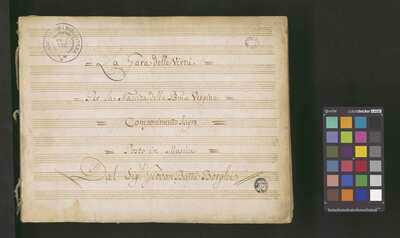 La Gara delle Virtù
Per la Nascita della Bma Vergine
Componimento Sagro
Posto in Musica
Dal Sigr Giovan Batta Borghi